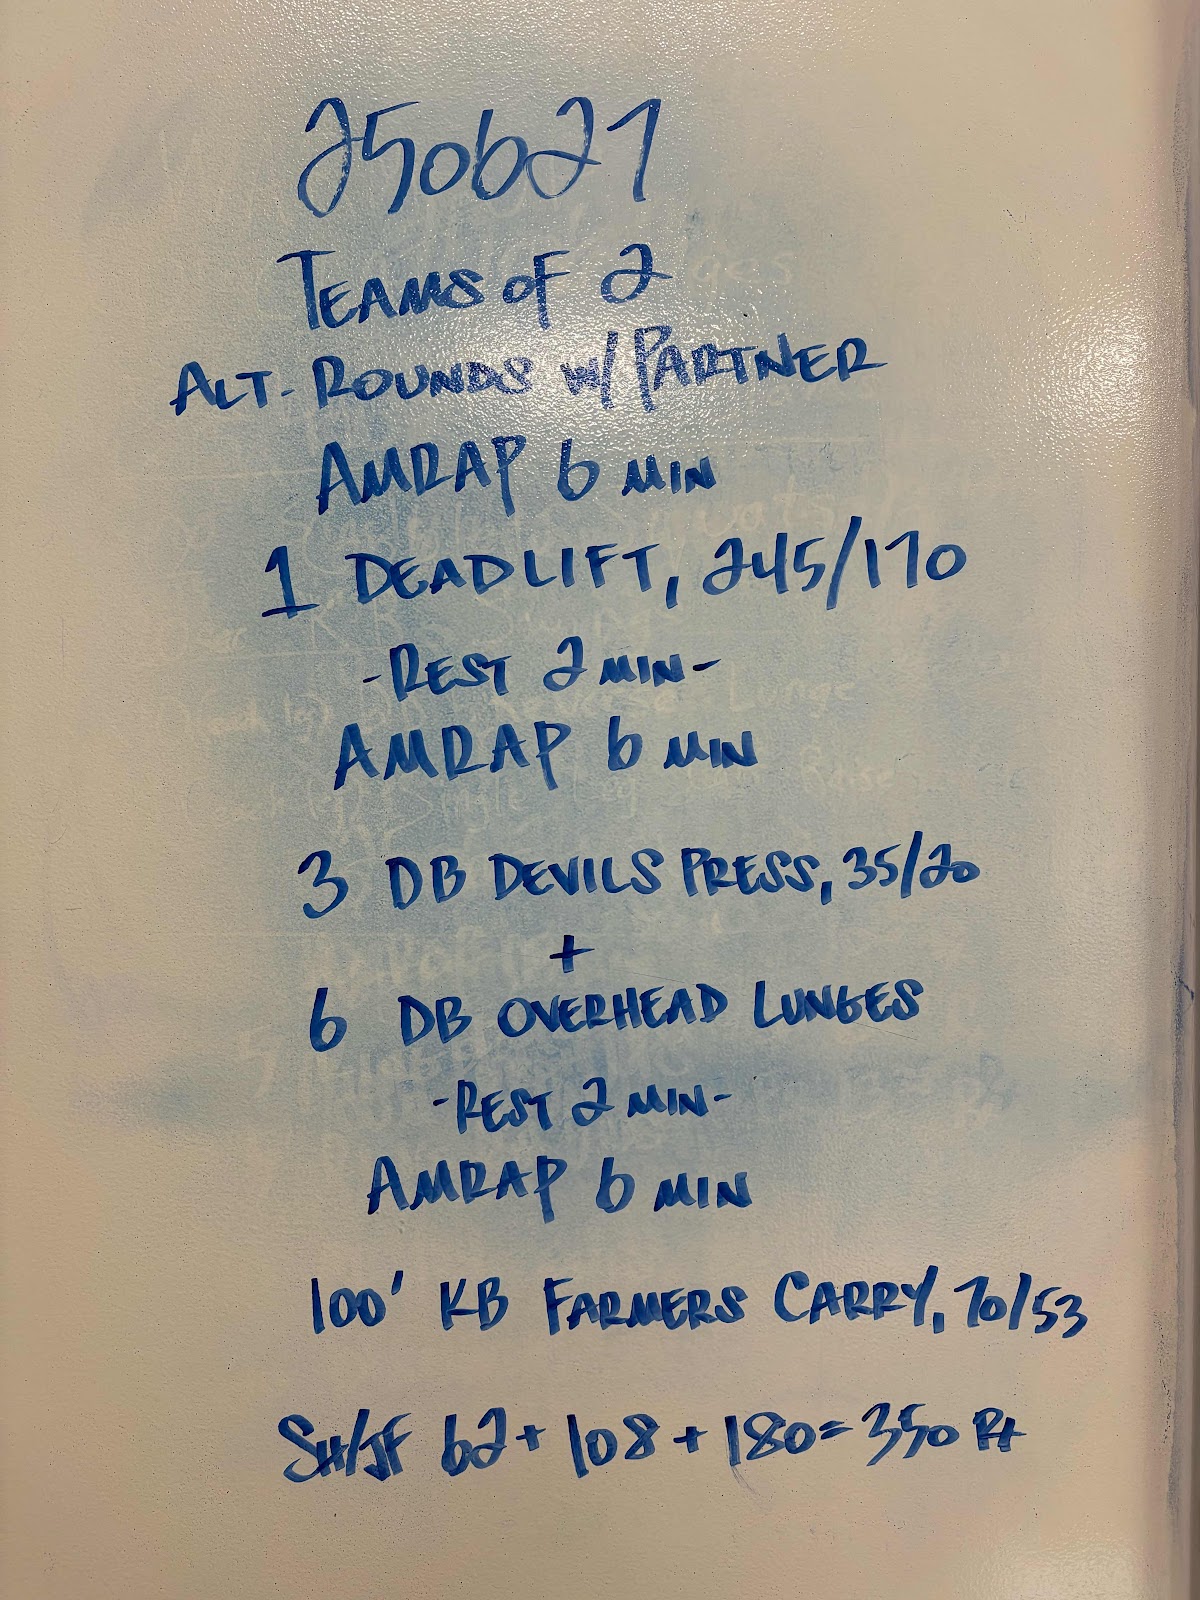 250621
TEAMS OF 2
ALT. ROUNDS W/ PARTNER
AMRAP 6 MIN
1 DEADLIFT, 245/170
-REST 2 MIN-
AMRAP 6 MIN
3 DB DEVILS PRESS, 35/20
+
6 DB OVERHEAD LUNGES
-REST 2 MIN-
AMRAP 6 MIN
100' KB FARMERS CARRY, 70/53
SH/JF 62 + 108 + 180 = 350 Rx